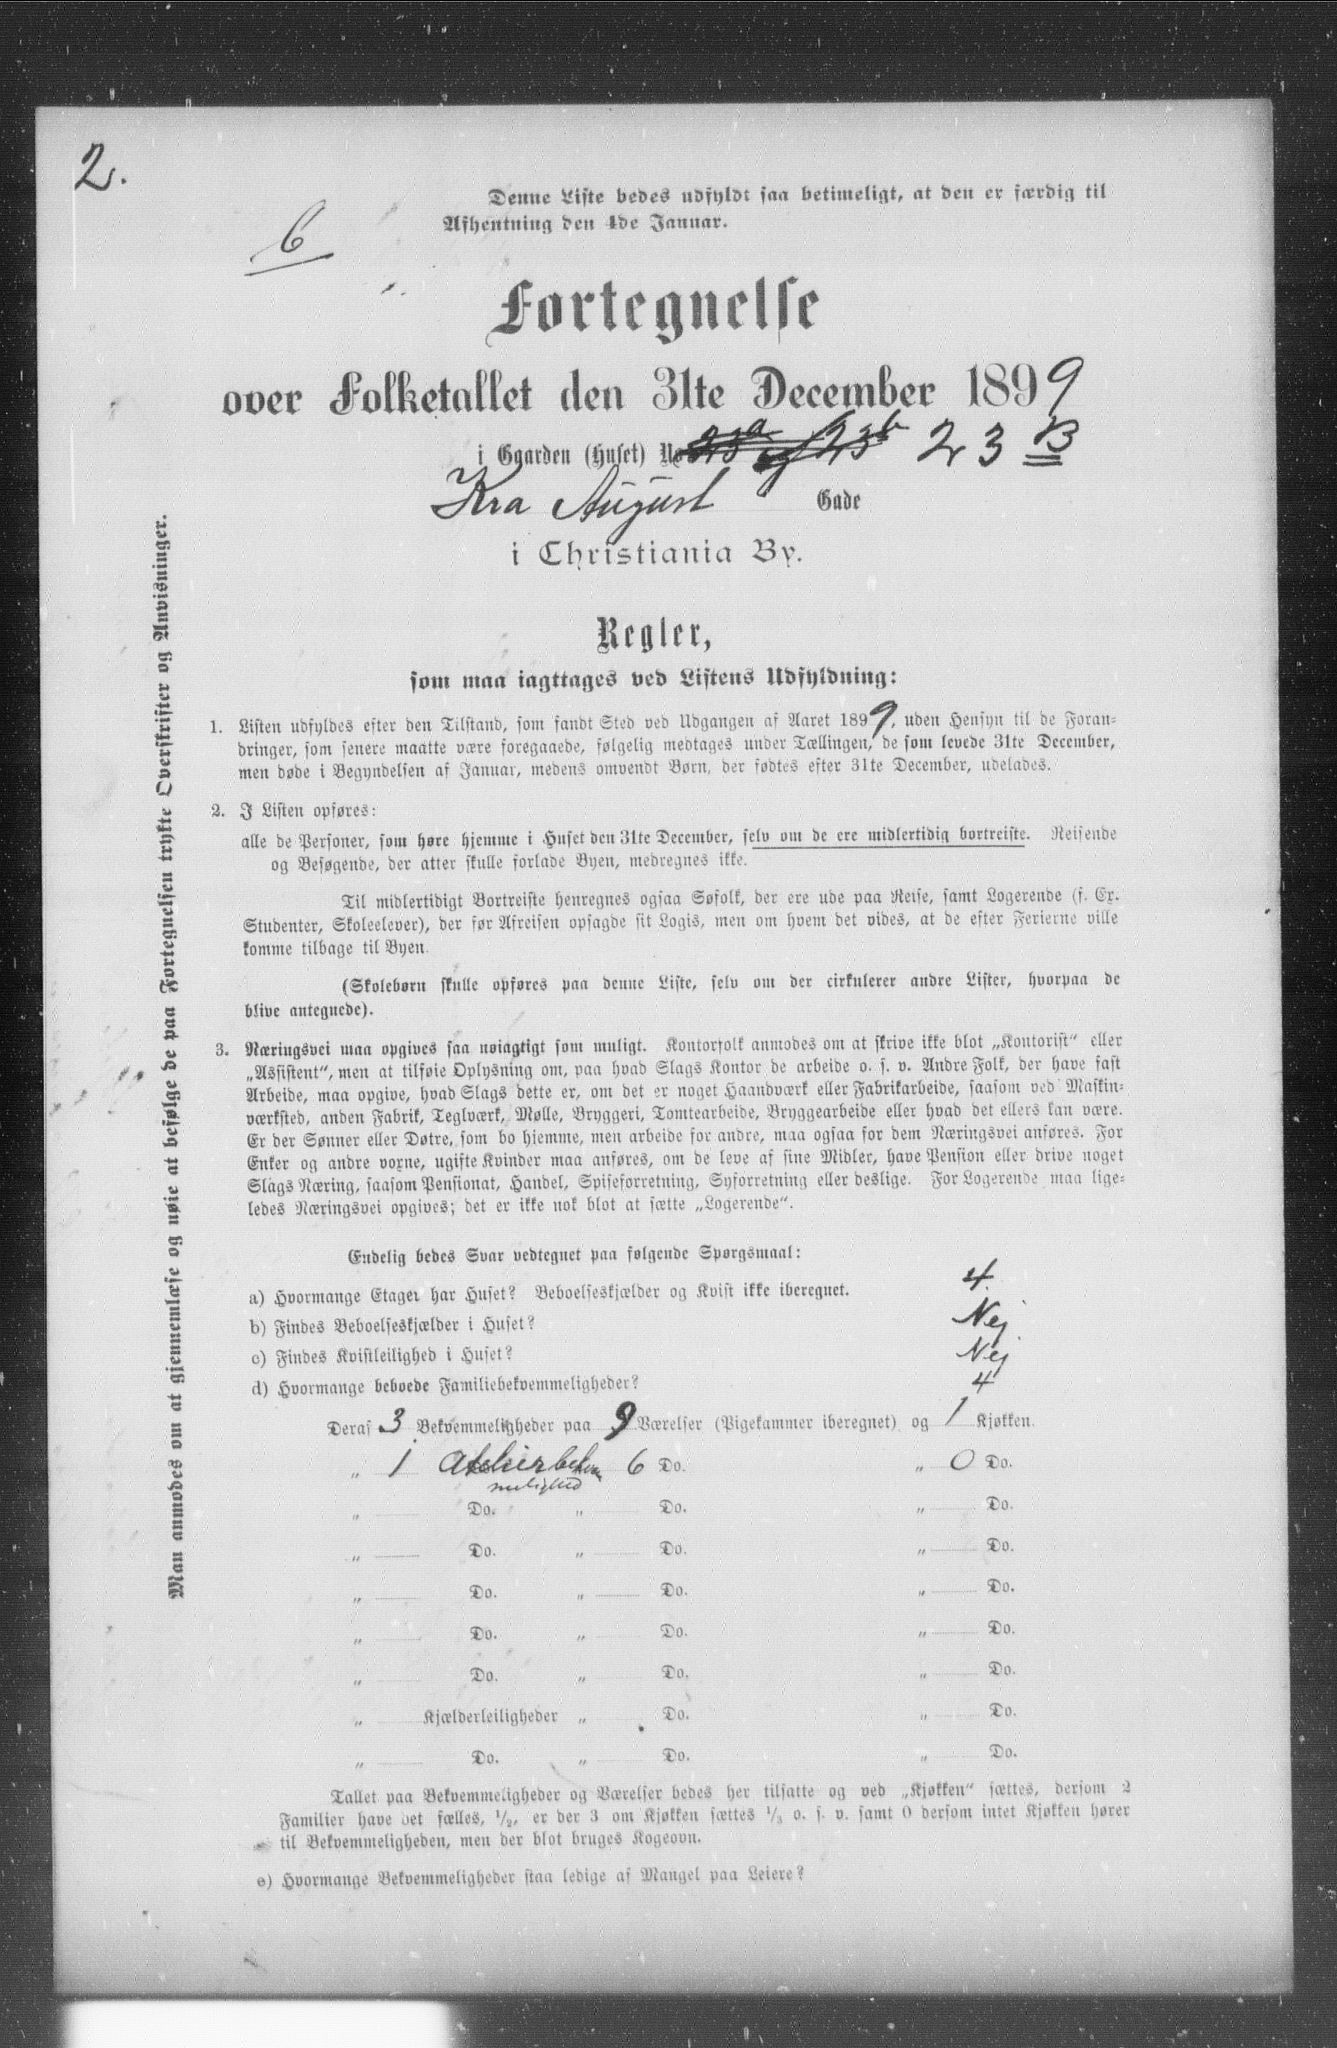 2.
Denne Liste bedes udfyldt saa betimeligt, at den er færdig til
Afhentning den 4de Januar.
6
Fortegnelse
over Folketallet den 31te December 1899
i Gaarden (Huset) No 23a og 23b 23 B
Kra August Gade
i Christiania By.
Regler,
som maa iagttages ved Listens Udfyldning:
1. Listen udfyldes efter den Tilstand, som fandt Sted ved Udgangen af Aaret 1899, uden Hensyn til de Foran-
dringer, som senere maatte være foregaaede, følgelig medtages under Tællingen, de som levede 31te December,
men døde i Begyndelsen af Januar, medens omvendt Børn, der fødtes efter 31te December, udelades.
2. I Listen opføres:
alle de Personer, som høre hjemme i Huset den 31te December, selv om de ere midlertidig bortreiste. Reisende
og Besøgende, der atter skulle forlade Byen, medregnes ikke.
Til midlertidigt Bortreiste henregnes ogsaa Søfolk, der ere ude paa Reise, samt Logerende (f. Ex.
Studenter, Skoleelever), der før Afreisen opsagde sit Logis, men om hvem det vides, at de efter Ferierne ville
komme tilbage til Byen.
(Skolebørn skulle opføres paa denne Liste, selv om der cirkulerer andre Lister, hvorpaa de
blive antegnede).
3. Næringsvei maa opgives saa nøiagtigt som muligt. Kontorfolk anmodes om at skrive ikke blot „Kontorist“ eller
„Assistent“, men at tilføie Oplysning om, paa hvad Slags Kontor de arbeide o. s. v. Andre Folk, der have fast
Arbeide, maa opgive, hvad Slags dette er, om det er noget Haandværk eller Fabrikarbeide, saasom ved Maskin-
værksted, anden Fabrik, Teglværk, Mølle, Bryggeri, Tomtearbeide, Bryggearbeide eller hvad det ellers kan være.
Er der Sønner eller Døtre, som bo hjemme, men arbeide for andre, maa ogsaa for dem Næringsvei anføres. For
Enker og andre voxne, ugifte Kvinder maa anføres, om de leve af sine Midler, have Pension eller drive noget
Slags Næring, saasom Pensionat, Handel, Spiseforretning, Syforretning eller deslige. For Logerende maa lige-
ledes Næringsvei opgives; det er ikke nok blot at sætte „Logerende“.
Endelig bedes Svar vedtegnet paa følgende Spørgsmaal:
a) Hvormange Etager har Huset? Beboelseskjælder og Kvist ikke iberegnet. 4.
b) Findes Beboelseskjælder i Huset? Nej
c) Findes Kvistleilighed i Huset? Nej
d) Hvormange beboede Familiebekvemmeligheder? 4
Deraf 3 Bekvemmeligheder paa 9 Værelser (Pigekammer iberegnet) og 1 Kjøkken.
„ 1 Atelierbekvem 6 Do. „ 0 Do.
melighed
„ Do. „ Do. „ Do.
„ Do. „ Do. „ Do.
„ Do. „ Do. „ Do.
„ Do. „ Do. „ Do.
„ Do. „ Do. „ Do.
„ Kjælderleiligheder „ Do. „ Do.
„ Do. „ Do. „ Do.
Tallet paa Bekvemmeligheder og Værelser bedes her tilsatte og ved „Kjøkken“ sættes, dersom 2
Familier have det fælles, 1/2, er der 3 om Kjøkken sættes 1/3 o. s. v. samt 0 dersom intet Kjøkken hører
til Bekvemmeligheden, men der blot bruges Kogeovn.
e) Hvormange Bekvemmeligheder staa ledige af Mangel paa Leiere?
Man anmodes om at gjennemlæse og nøie at befølge de paa Fortegnelsen trykte Overskrifter og Anvisninger.